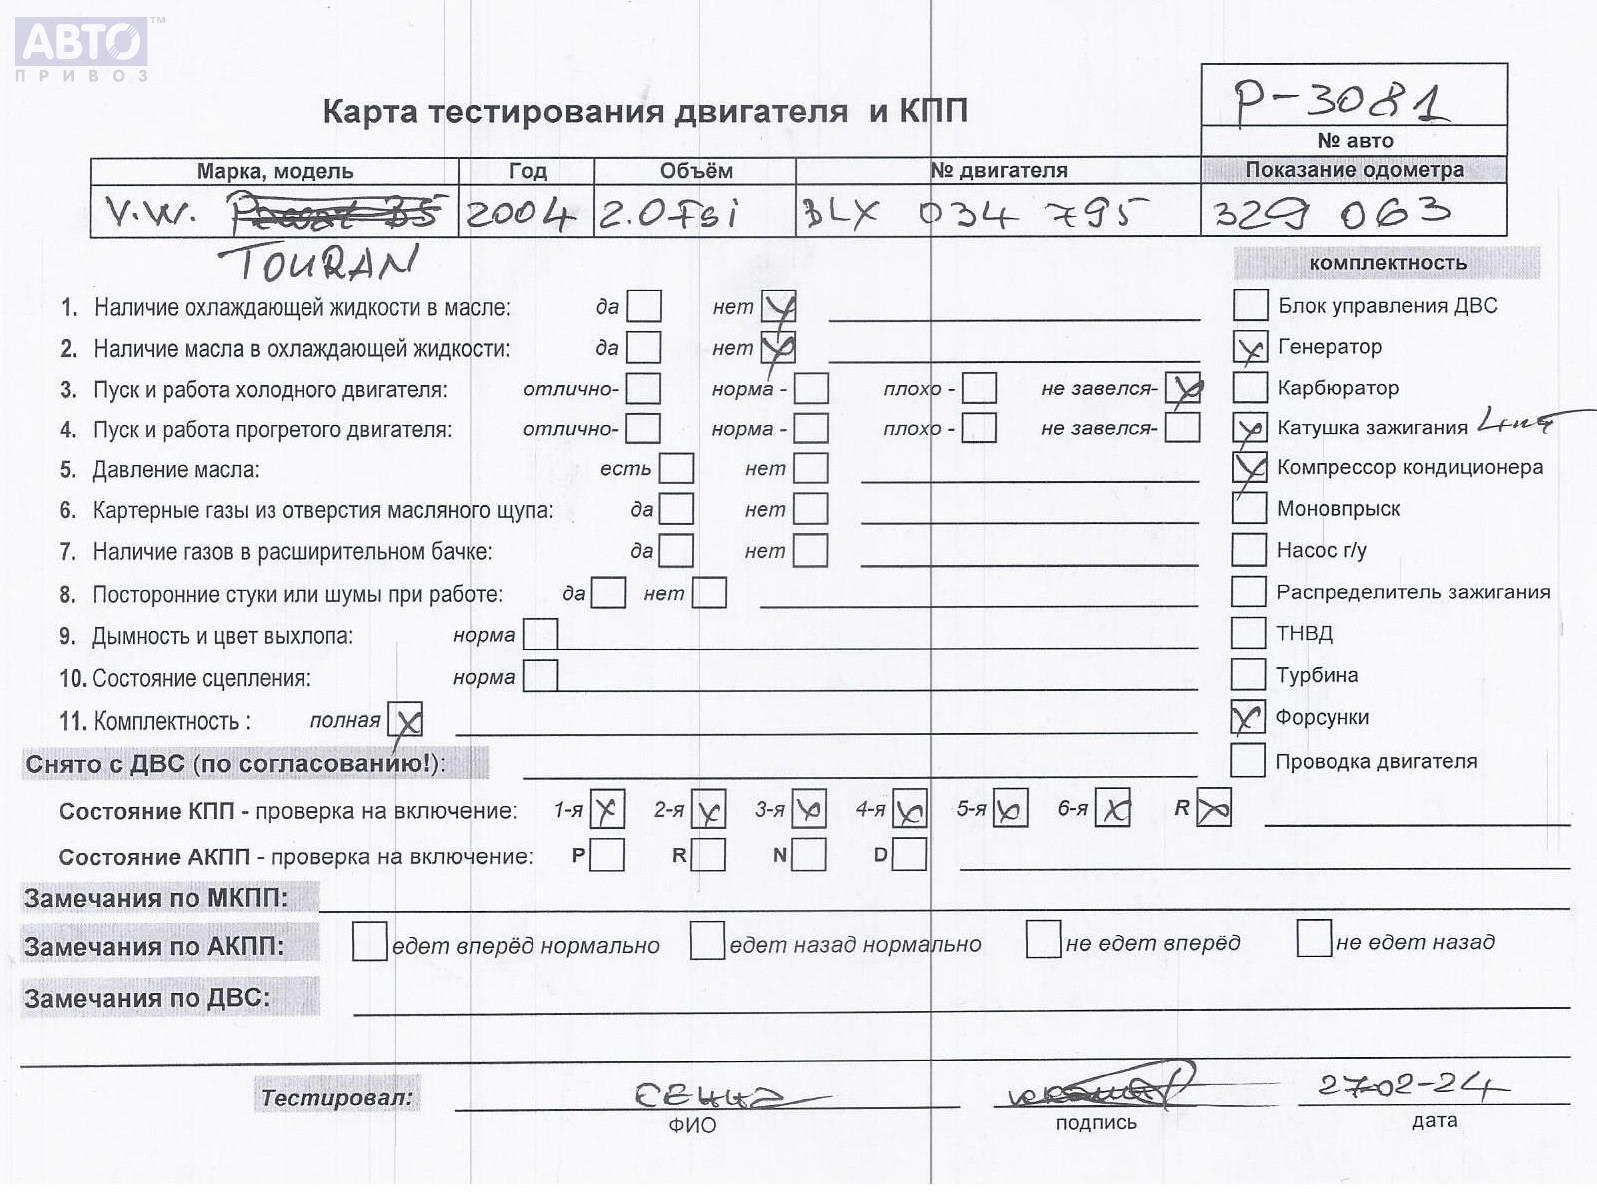 АВТО™
ПРИВОЗ
Карта тестирования двигателя и КПП
P-3081
№ авто
Марка, модель Год Объём № двигателя Показание одометра
V.W. 2004 2.0 Fsi BLX 034 795 329 063
TOURAN
комплектность
1. Наличие охлаждающей жидкости в масле: да нет
Блок управления ДВС
2. Наличие масла в охлаждающей жидкости: да нет
Генератор
3. Пуск и работа холодного двигателя: отлично- норма - плохо - не завелся-
Карбюратор
4. Пуск и работа прогретого двигателя: отлично- норма - плохо - не завелся-
Катушка зажигания 4шт
5. Давление масла: есть нет
Компрессор кондиционера
6. Картерные газы из отверстия масляного щупа: да нет
Моновпрыск
7. Наличие газов в расширительном бачке: да нет
Насос г/у
8. Посторонние стуки или шумы при работе: да нет
Распределитель зажигания
9. Дымность и цвет выхлопа: норма
ТНВД
10. Состояние сцепления: норма
Турбина
11. Комплектность : полная
Форсунки
Снято с ДВС (по согласованию!):
Проводка двигателя
Состояние КПП - проверка на включение: 1-я 2-я 3-я 4-я 5-я 6-я R
Состояние АКПП - проверка на включение: P R N D
Замечания по МКПП:
Замечания по АКПП: едет вперёд нормально едет назад нормально не едет вперёд не едет назад
Замечания по ДВС:
Тестировал: 27-02-24
ФИО подпись дата